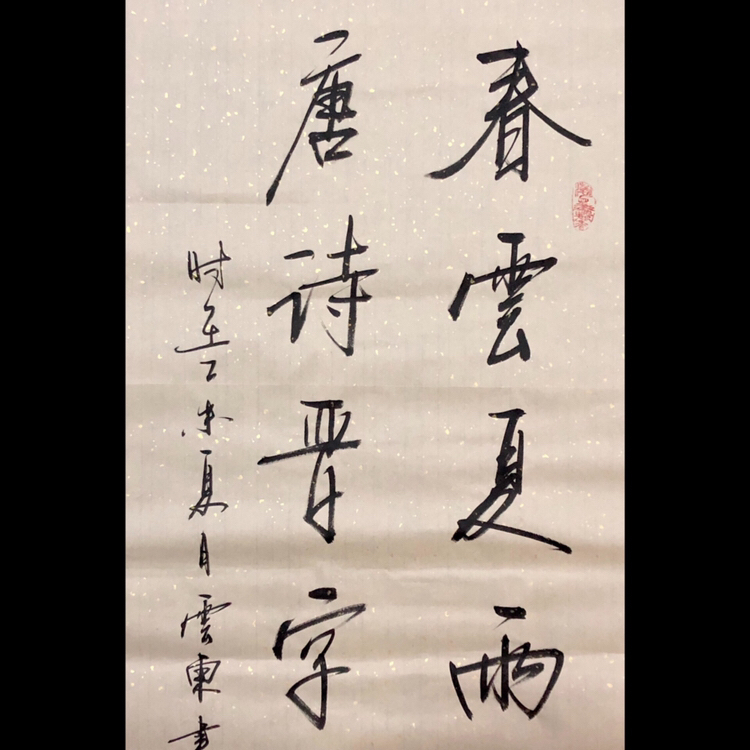 春雲夏雨
唐诗晋字
时在丁未夏月雲東书